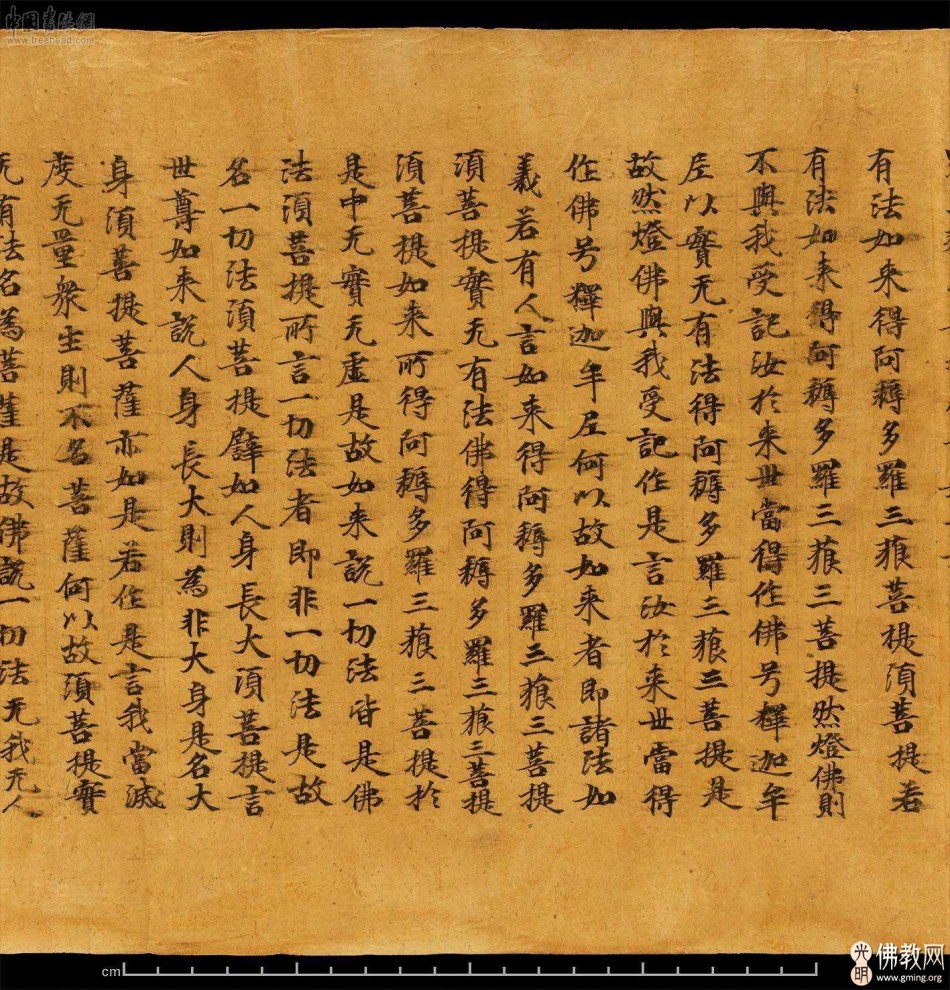 中国书法網
www.freehead.com
有法如来得阿耨多羅三藐菩提須菩提若
有法如来得阿耨多羅三藐三菩提然燈佛則
不與我受記汝於来世當得作佛号釋迦牟
尼以實无有法得阿耨多羅三藐三菩提是
故然燈佛與我受記作是言汝於来世當得
作佛号釋迦牟尼何以故如来者即諸法如
義若有人言如来得阿耨多羅三藐三菩提
須菩提實无有法佛得阿耨多羅三藐三菩提
須菩提如来所得阿耨多羅三藐三菩提於
是中无實无虛是故如来說一切法皆是佛
法須菩提所言一切法者即非一切法是故
名一切法須菩提譬如人身長大須菩提言
世尊如来說人身長大則為非大身是名大
身須菩提菩薩亦如是若作是言我當滅
度无量衆生則不名菩薩何以故須菩提實
无有法名為菩薩是故佛說一切法无我无人
cm
光明 佛教网
www.gming.org